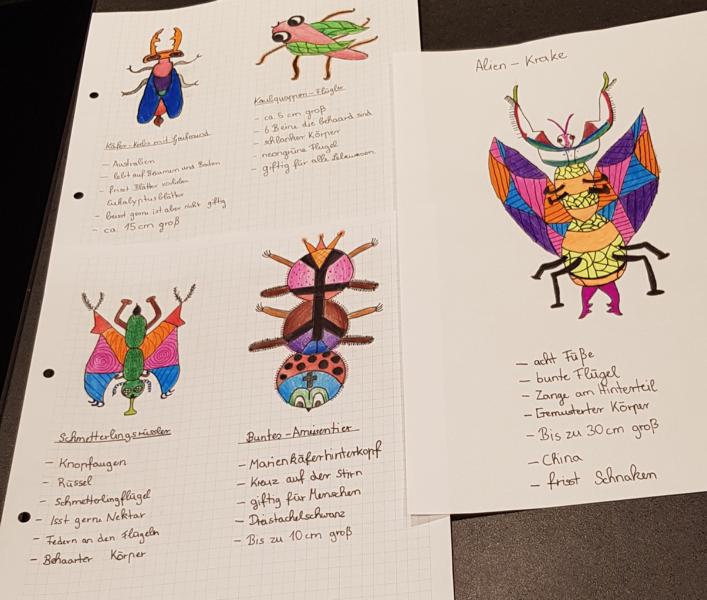 Käfer-Krebs mit
- Australien
- lebt auf Bäumen und Boden
- frisst Blätter
Eukalyptusblätter
- beisst gerne ist aber nicht giftig
- ca. 15 cm groß
Kaulquappen-Flügler
- ca. 5 cm groß
- 6 Beine die behaard sind
- schlanker Körper
- neongrüne Flügel
- giftig für alle Lebewesen
Schmetterlingsrüssler
- Knopfaugen
- Rüssel
- Schmetterlingflügel
- Isst gerne Nektar
- Federn an den Flügeln
- Behaarter Körper
Buntes-Ameisentier
- Marienkäferhinterkopf
- Kreuz auf der Stirn
- giftig für Menschen
- Dreistachelschwanz
- Bis zu 10 cm groß
Alien-Krake
- acht Füße
- bunte Flügel
- Zange am Hinterteil
- Gemusterter Körper
- Bis zu 30 cm groß
- China
- frisst Schnaken